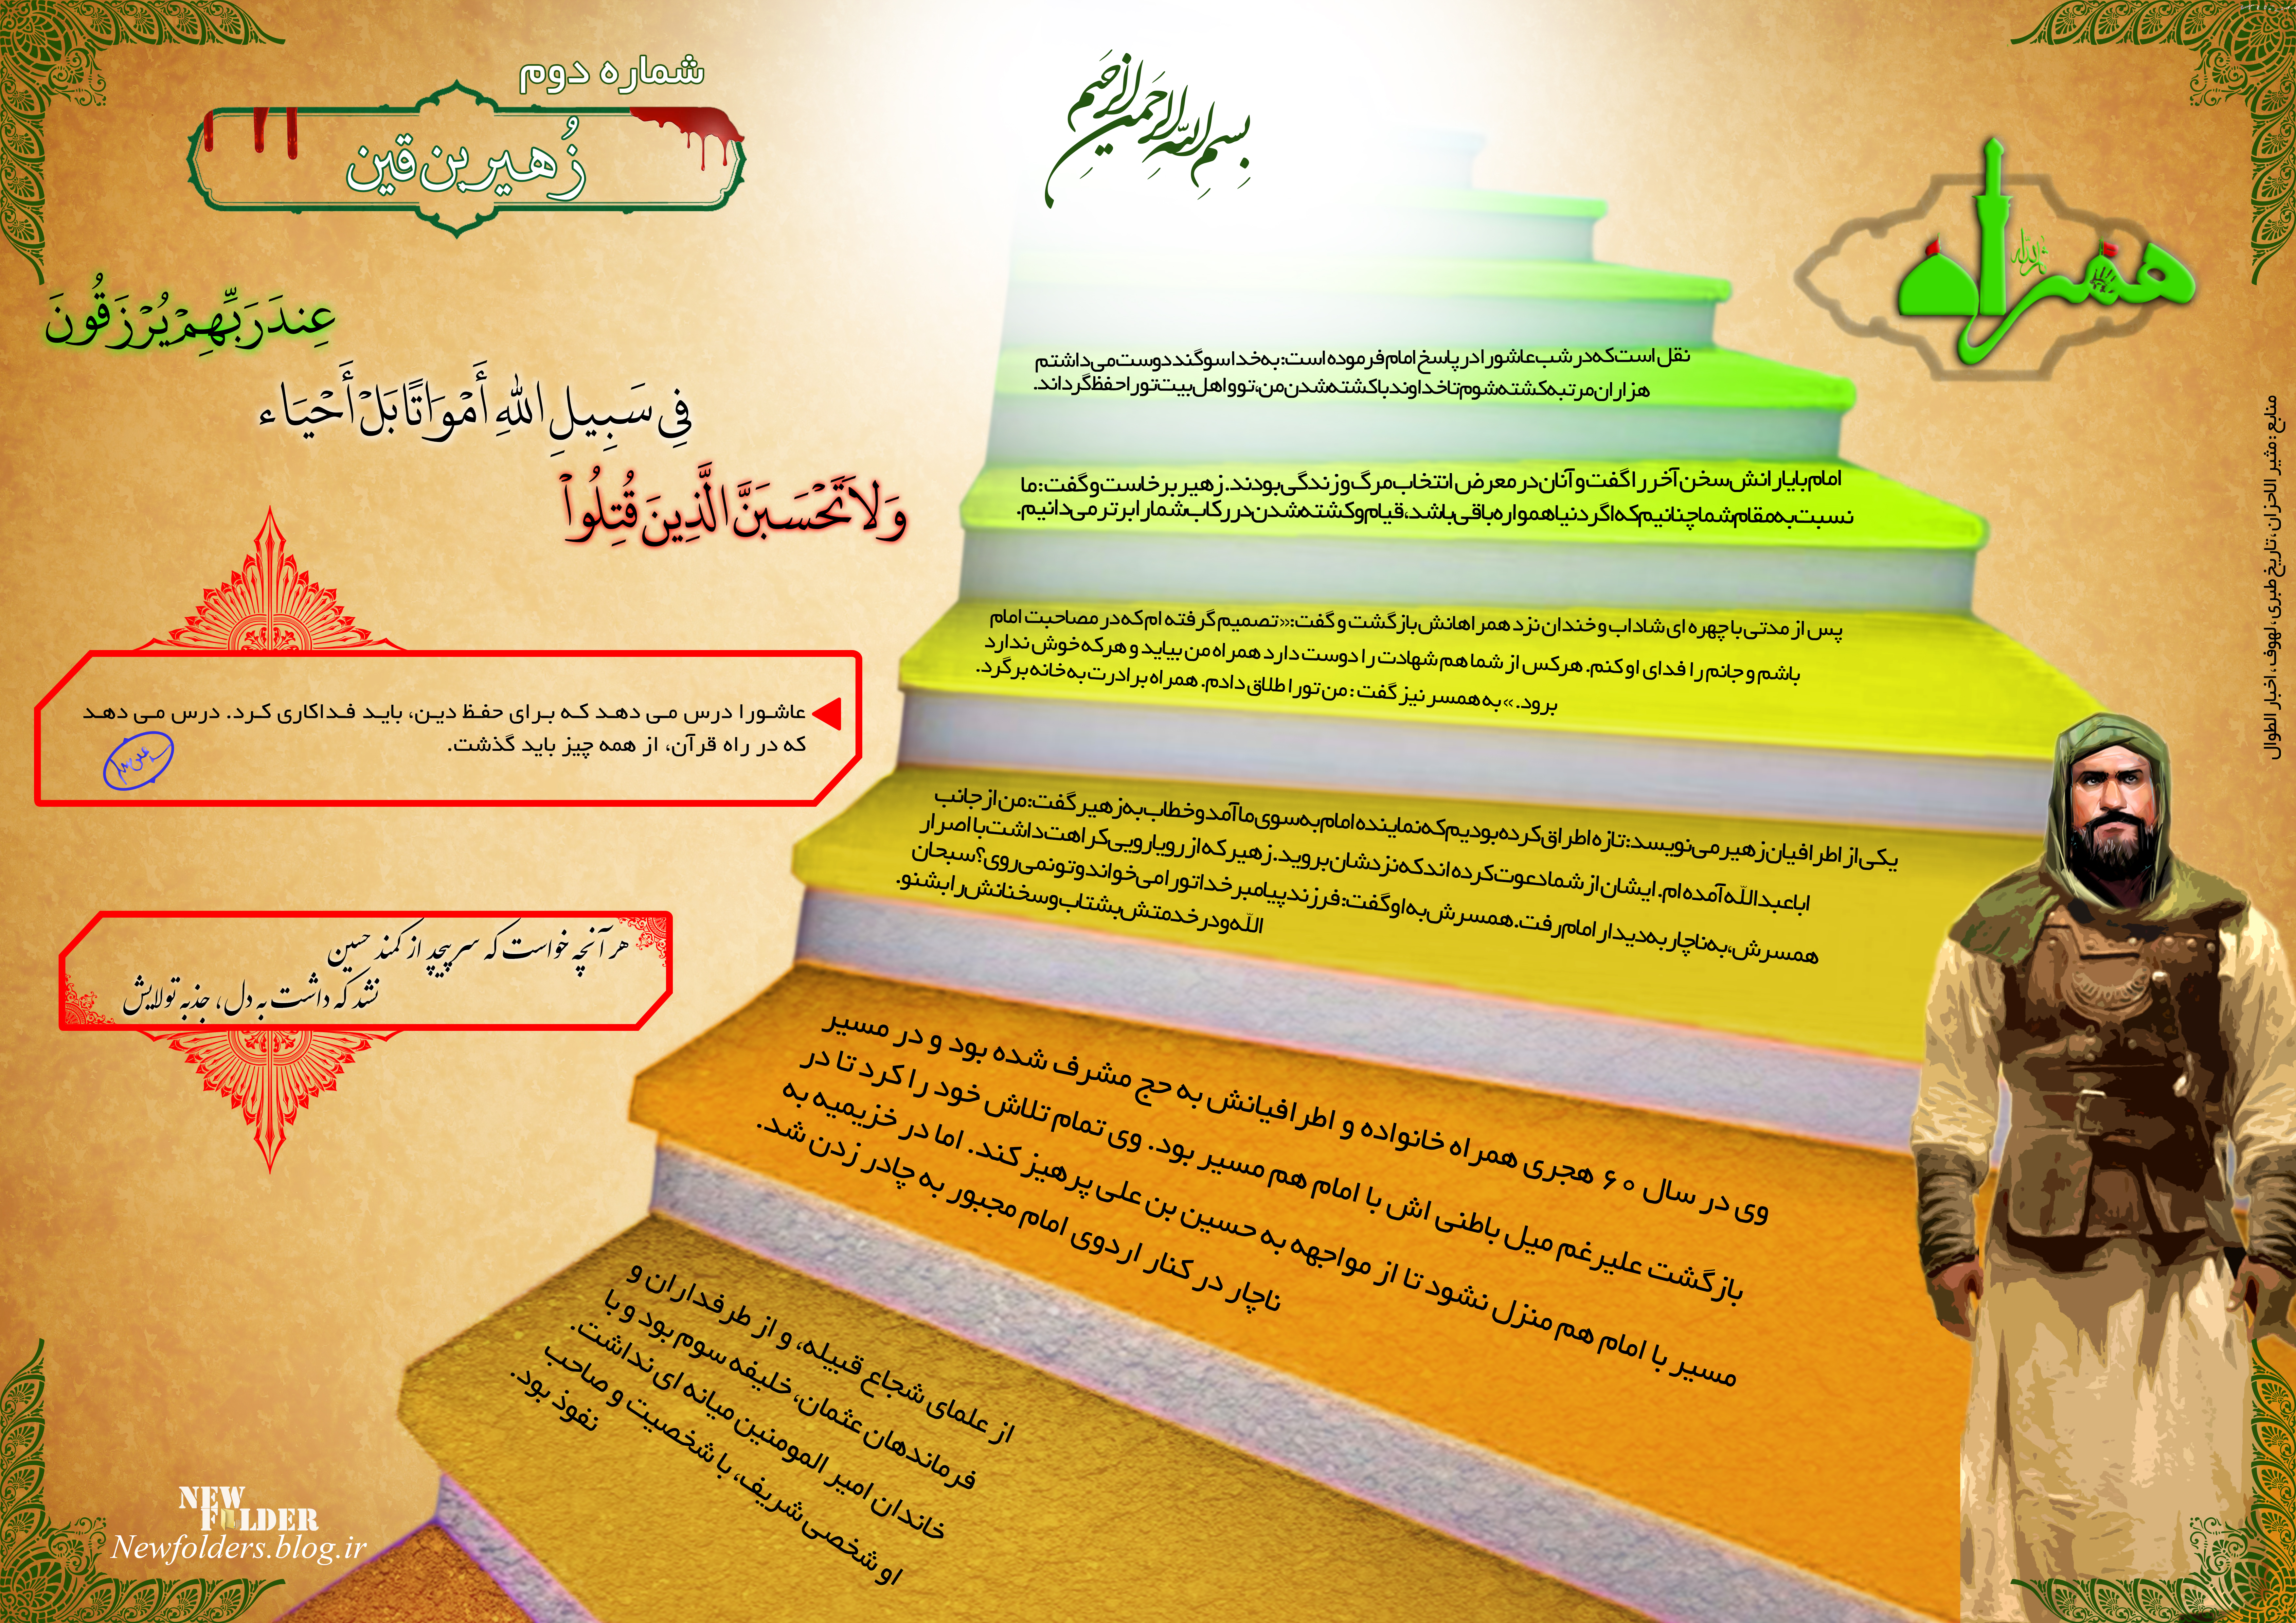 بسم الله الرحمن الرحیم
همراه
شماره دوم
زُهیر بن قین
عِندَ رَبِّهِمْ یُرْزَقُونَ
فِی سَبِیلِ اللهِ أَمْوَاتًا بَلْ أَحْیَاء
وَلاَ تَحْسَبَنَّ الَّذِینَ قُتِلُواْ
نقل است که در شب عاشورا در پاسخ امام فرموده است: به خدا سوگند دوست می‌داشتم
هزاران مرتبه کشته شوم تا خداوند با کشته شدن من، تو و اهل بیت تو را حفظ گرداند.
امام با یارانش سخن آخر را گفت و آنان در معرض انتخاب مرگ و زندگی بودند. زهیر برخاست و گفت: ما
نسبت به مقام شما چنانیم که اگر دنیا همواره باقی باشد، قیام و کشته شدن در رکاب شما را برتر می‌دانیم.
پس از مدتی با چهره ای شاداب و خندان نزد همراهانش بازگشت و گفت: «تصمیم گرفته ام که در مصاحبت امام
باشم و جانم را فدای او کنم. هرکس از شما هم شهادت را دوست دارد همراه من بیاید و هرکه خوش ندارد
برود.» به همسر نیز گفت: من تو را طلاق دادم. همراه برادرت به خانه برگرد.
یکی از اطرافیان زهیر می‌نویسد: تازه اطراق کرده بودیم که نماینده امام به سوی ما آمد و خطاب به زهیر گفت: من از جانب
اباعبدالله آمده ام. ایشان از شما دعوت کرده اند که نزدشان بروید. زهیر که از رویارویی کراهت داشت با اصرار
همسرش، به ناچار به دیدار امام رفت. همسرش به او گفت: فرزند پیامبر خدا تو را می‌خواند و تو نمی‌روی؟ سبحان
الله و در خدمتش بشتاب و سخنانش را بشنو.
وی در سال ۶۰ هجری همراه خانواده و اطرافیانش به حج مشرف شده بود و در مسیر
بازگشت علیرغم میل باطنی اش با امام هم مسیر بود. وی تمام تلاش خود را کرد تا در
مسیر با امام هم منزل نشود تا از مواجهه به حسین بن علی پرهیز کند. اما در خزیمیه به
ناچار در کنار اردوی امام مجبور به چادر زدن شد.
از علمای شجاع قبیله، و از طرفداران و
فرماندهان عثمان، خلیفه سوم بود و با
خاندان امیر المومنین میانه ای نداشت.
او شخصی شریف، با شخصیت و صاحب
نفوذ بود.
عاشورا درس می دهد که برای حفظ دین، باید فداکاری کرد. درس می دهد
که در راه قرآن، از همه چیز باید گذشت.
هر آنچه خواست که سر پیچد از کمند حسین
نشد که داشت به دل، جذبه تولایش
منابع: مثیر الاحزان، تاریخ طبری، لهوف، اخبار الطوال
NEW
FOLDER
Newfolders.blog.ir